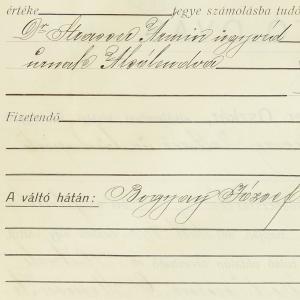 értéke jegye számolásba tudó
Dr Strasser Ármin ügyvéd
úrnak Alsólendva
Fizetendő
A váltó hátán: Bogyay József